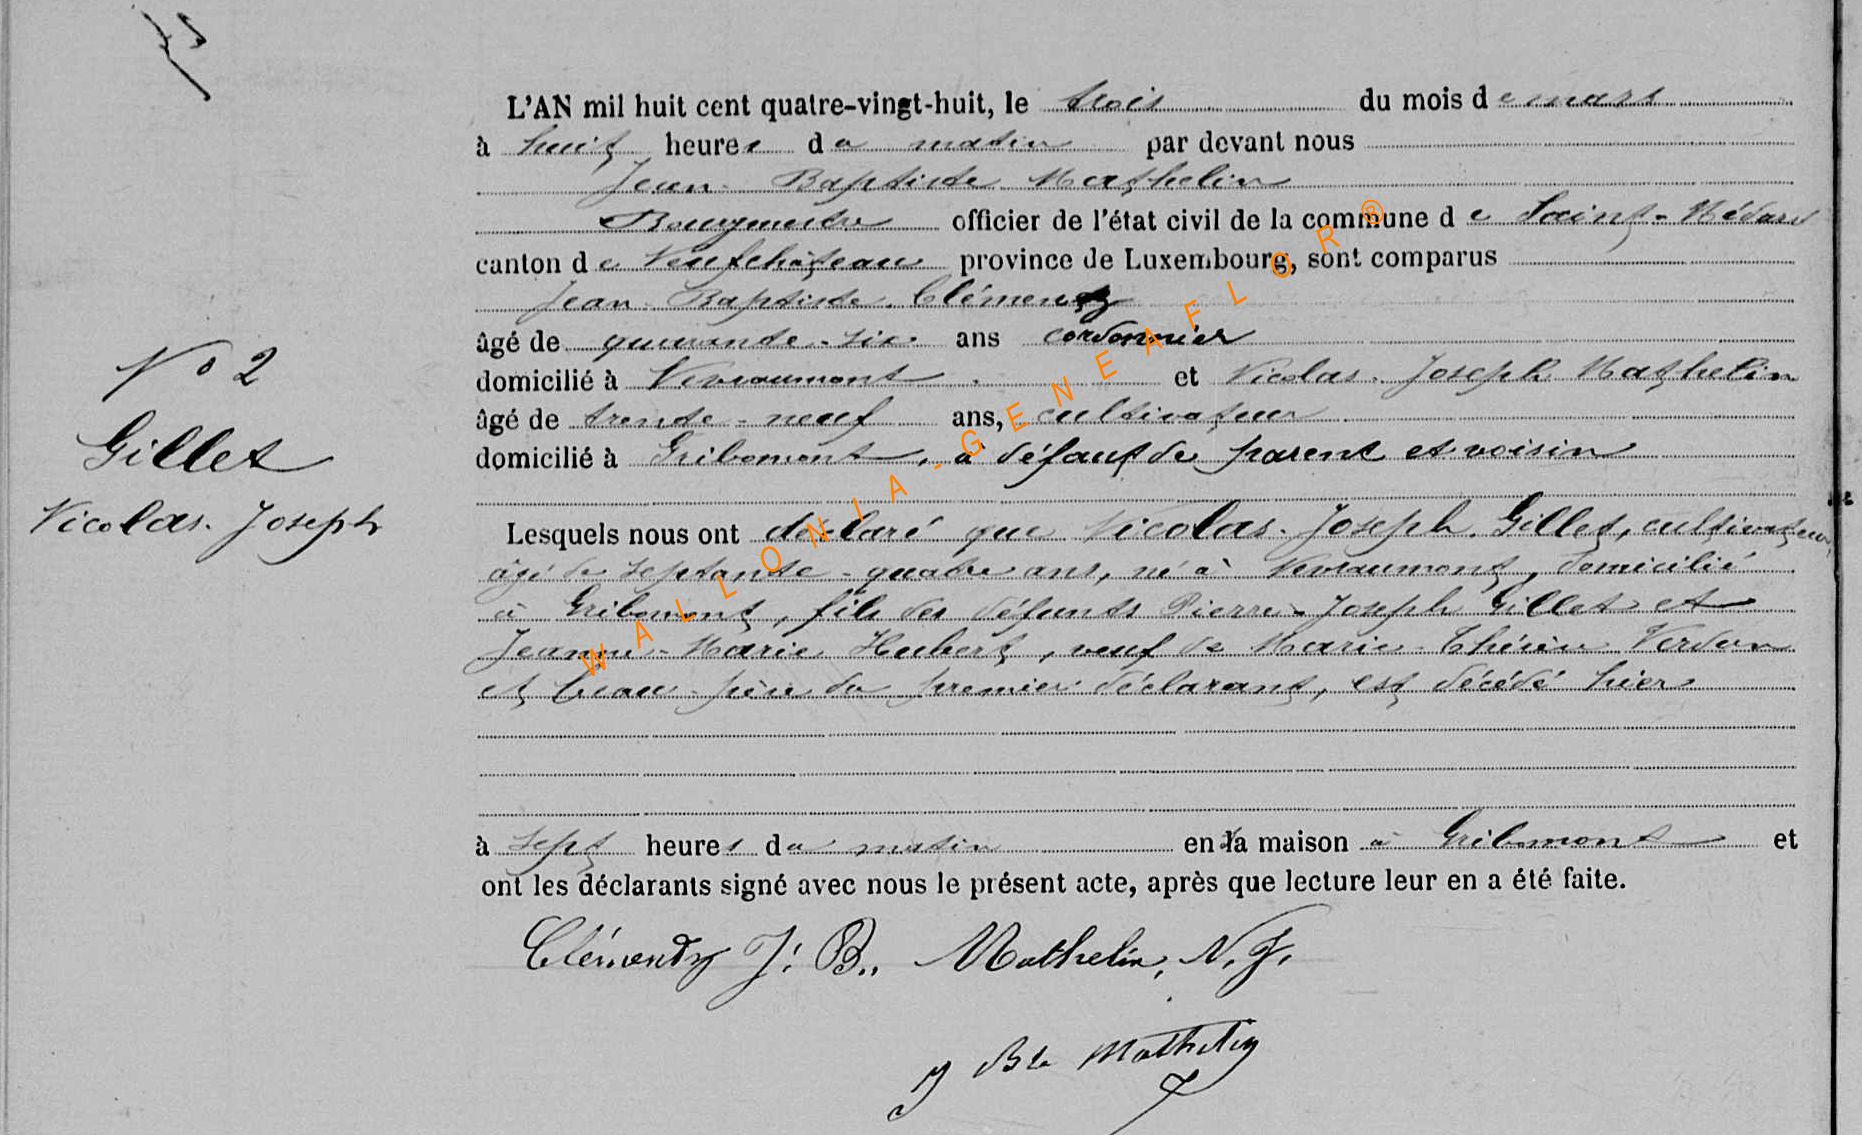 L'AN mil huit cent quatre-vingt-huit, le trois du mois de mars
à huit heures du matin par devant nous
Jean-Baptiste Mathelin
Bourgmestre officier de l'état civil de la commune de Saint-Médard
canton de Neufchâteau province de Luxembourg, sont comparus
Jean-Baptiste Clémentz
âgé de quarante-six ans cordonnier
domicilié à Nevraumont et Nicolas-Joseph Mathelin
âgé de trente-neuf ans, cultivateur
domicilié à Gribomont, à défaut de parent et voisin
No 2
Gillet
Nicolas-Joseph
Lesquels nous ont déclaré que Nicolas-Joseph Gillet, cultivateur,
âgé de septante-quatre ans, né à Nevraumont, domicilié
à Gribomont, fils des défunts Pierre-Joseph Gillet et
Jeanne-Marie Hubert, veuf de Marie-Thérèse Verdun
et beau-père du premier déclarant, est décédé hier
à sept heures du matin en la maison à Gribomont et
ont les déclarants signé avec nous le présent acte, après que lecture leur en a été faite.
Clémentz J. B. Mathelin, N. J.
J Bte Mathelin
WALLONIA-GENEAFLOR®